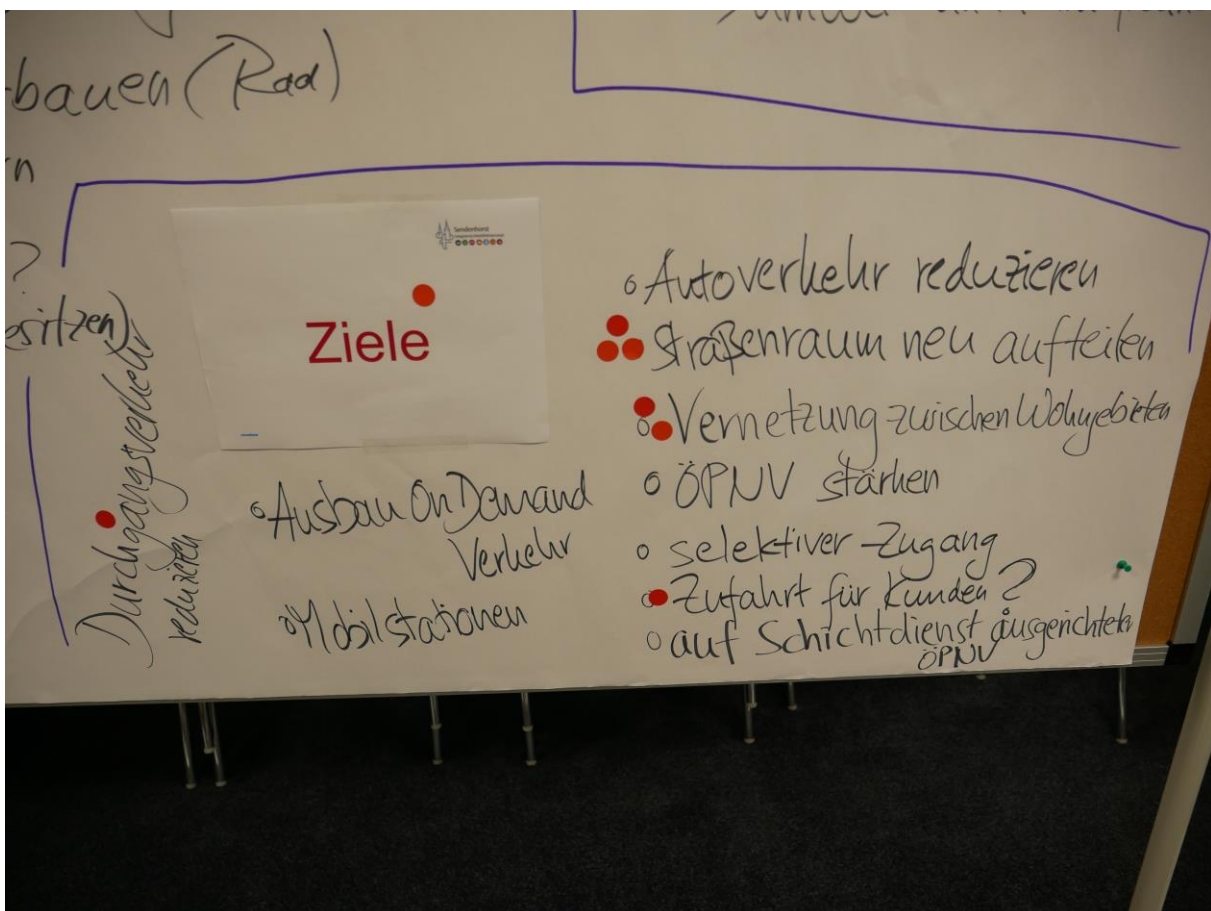 bauen (Rad)
n
?
esitzen)
Sendenhorst
Ziele
Durchgangsverkehr
reduzieren
Ausbau OnDemand
Verkehr
Mobilstationen
Autoverkehr reduzieren
Straßenraum neu aufteilen
Vernetzung zwischen Wohngebieten
ÖPNV stärken
selektiver Zugang
Zufahrt für Kunden?
auf Schichtdienst ausgerichteter
ÖPNV